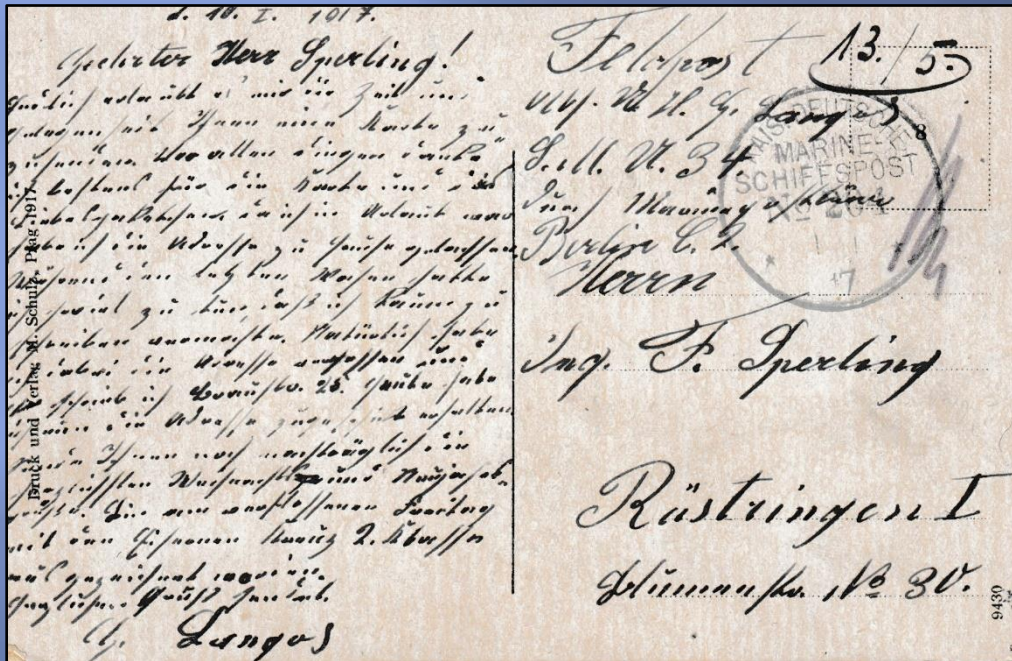 d. 10. I. 1917.
Geehrter Herr Sperling!
Endlich erlaubt es mir die Zeit und
Ihnen eine Karte zu
zusenden. Vor allen Dingen danke
ich bestens für die Karte und das
da ich in Urlaub war
habe ich die Adresse zu Hause gelassen
Während den letzten Wochen hatte
ich soviel zu tun, daß ich kaum zu
schreiben vermochte. Natürlich habe
ich die Adresse vergessen und
schrieb ich 25. Heute habe
ich die Adresse zugeschickt erhalten
Ihnen noch nachträglich die
herzlichsten Weihnachts und Neujahrs
grüße. Bin am verflossenen Freitag
mit dem Eisernen Kreuz 2. Klasse
ausgezeichnet worden.
Herzlichen Gruß sendet
Langos
Druck und Verlag M. Schulz, Prag 1917
Feldpost
13./5.
Langos
S. M. U. 34
durch
Berlin C. 2.
KAIS. DEUTSCHE
MARINE-
SCHIFFSPOST
No
Herrn
Ing. F. Sperling
Rüstringen I
Blumenstr. No 30.
9430